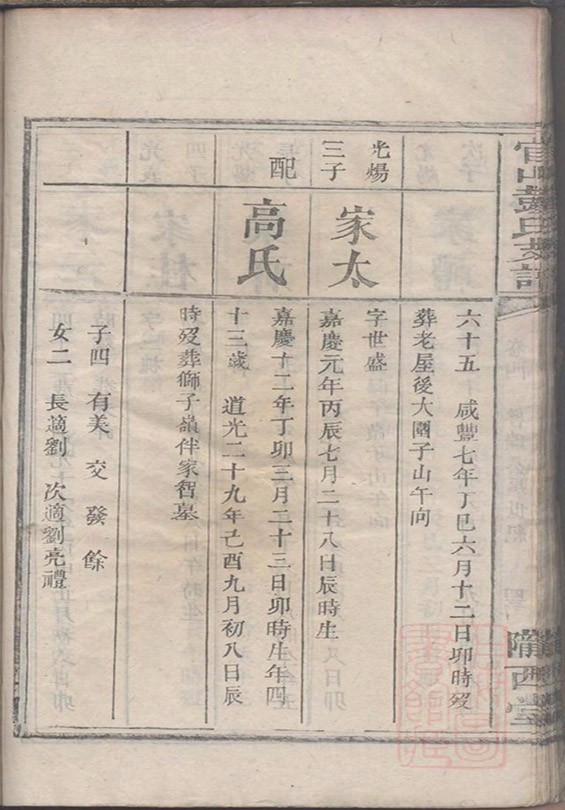 六十五 咸豐七年丁巳六月十二日卯時歿
葬老屋後大圍子山午向
光煬三子
家太
字世盛
嘉慶元年丙辰七月二十八日辰時生
配
高氏
嘉慶十二年丁卯三月二十三日卯時生年四
十三歲 道光二十九年己酉九月初八日辰
時歿葬獅子嶺伴家智墓
子四 有美 交 發 餘
女二 長適劉 次適劉亮禮